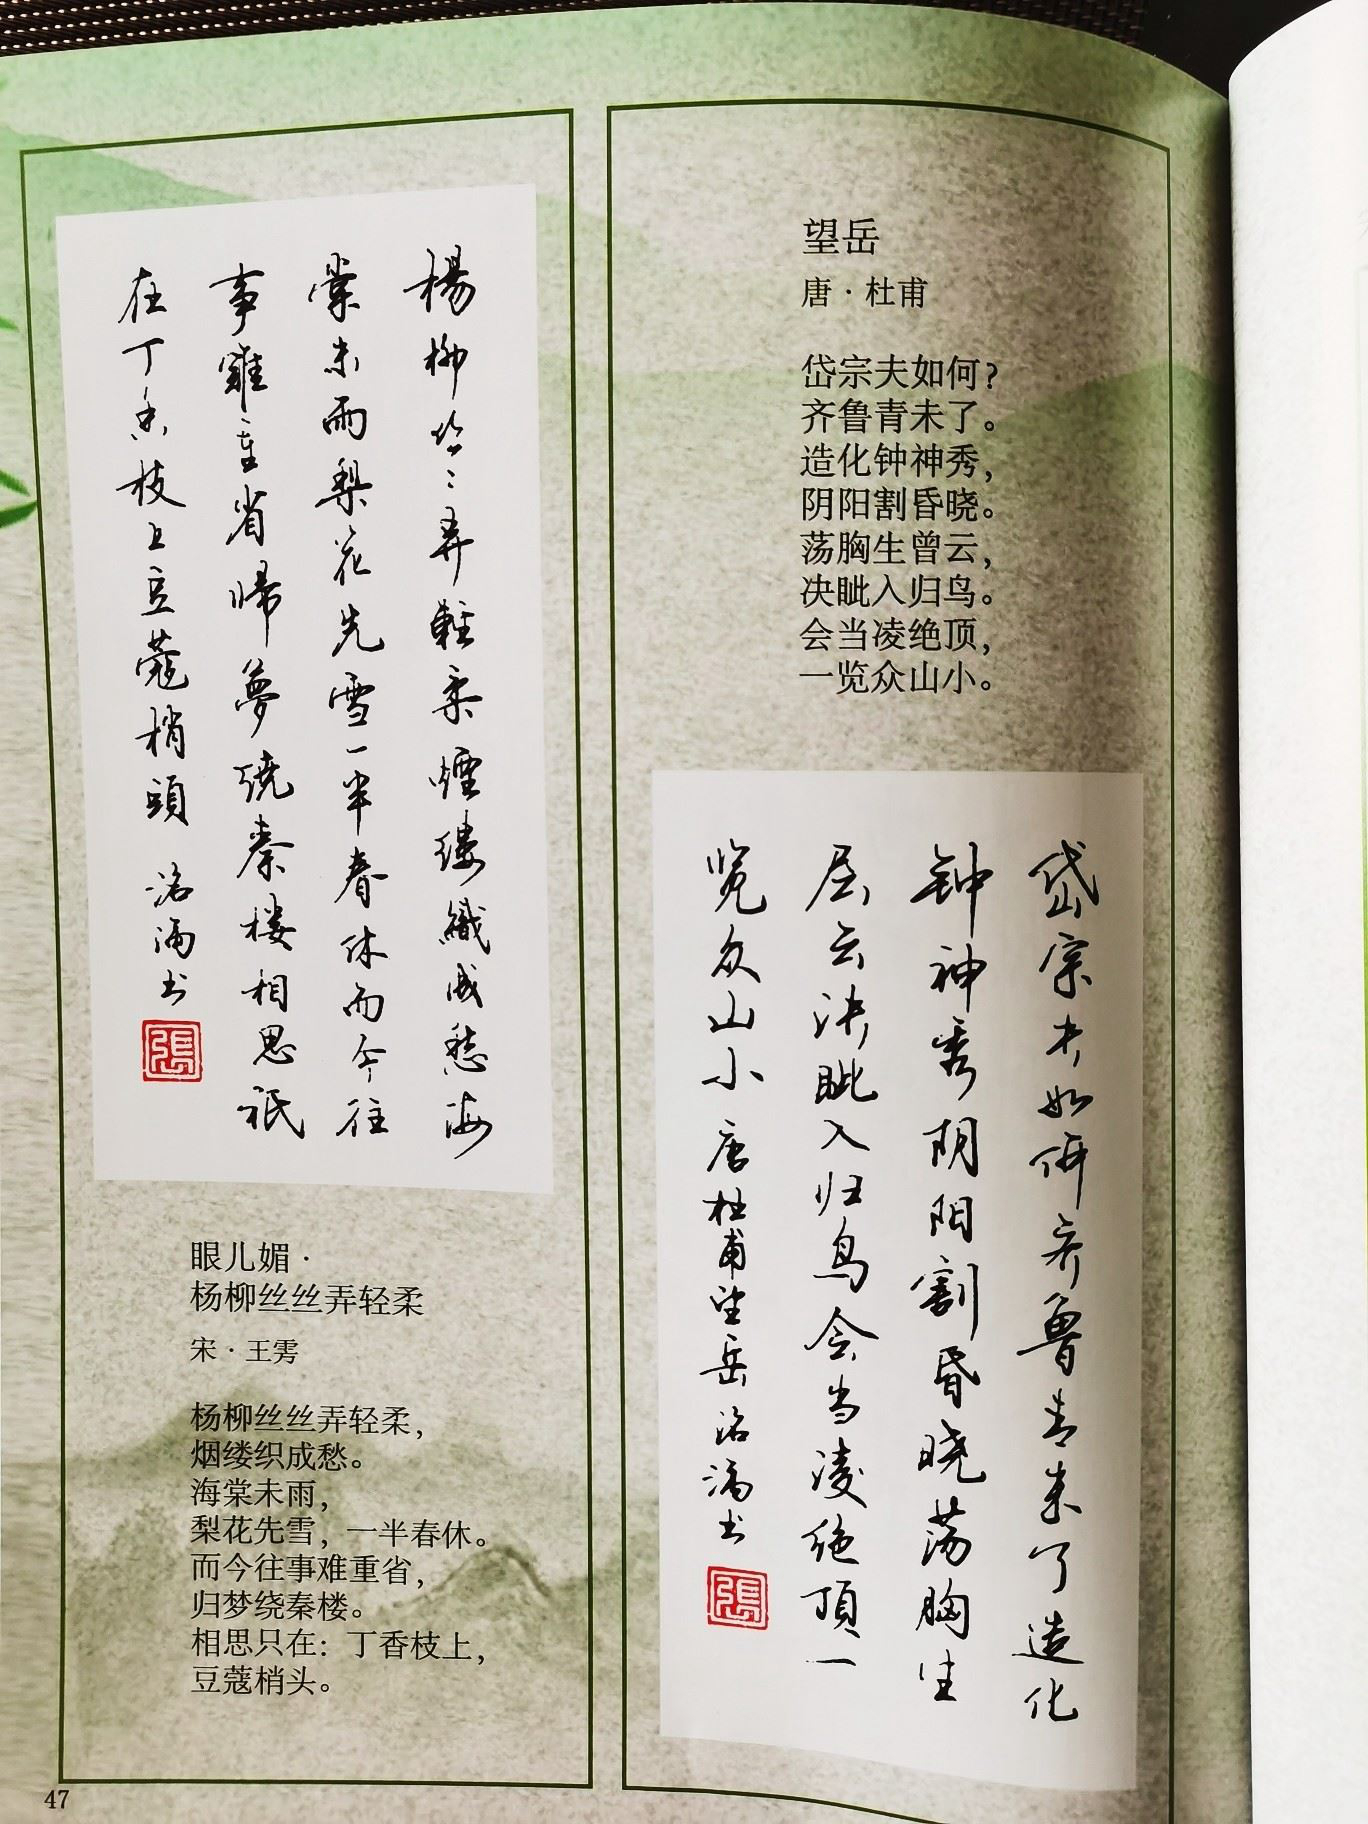 楊柳丝〻弄輕柔煙缕織成愁海
棠未雨梨花先雪一半春休而今往
事難重省歸夢繞秦楼相思祇
在丁香枝上豆蔻梢頭 洺滆书
張
眼儿媚·
杨柳丝丝弄轻柔
宋·王雱
杨柳丝丝弄轻柔，
烟缕织成愁。
海棠未雨，
梨花先雪，一半春休。
而今往事难重省，
归梦绕秦楼。
相思只在：丁香枝上，
豆蔻梢头。
47
望岳
唐·杜甫
岱宗夫如何？
齐鲁青未了。
造化钟神秀，
阴阳割昏晓。
荡胸生曾云，
决眦入归鸟。
会当凌绝顶，
一览众山小。
岱宗夫如何齐鲁青未了造化
钟神秀阴阳割昏晓荡胸生
层云决眦入归鸟会当凌绝顶一
览众山小唐杜甫望岳 洺滆书
張